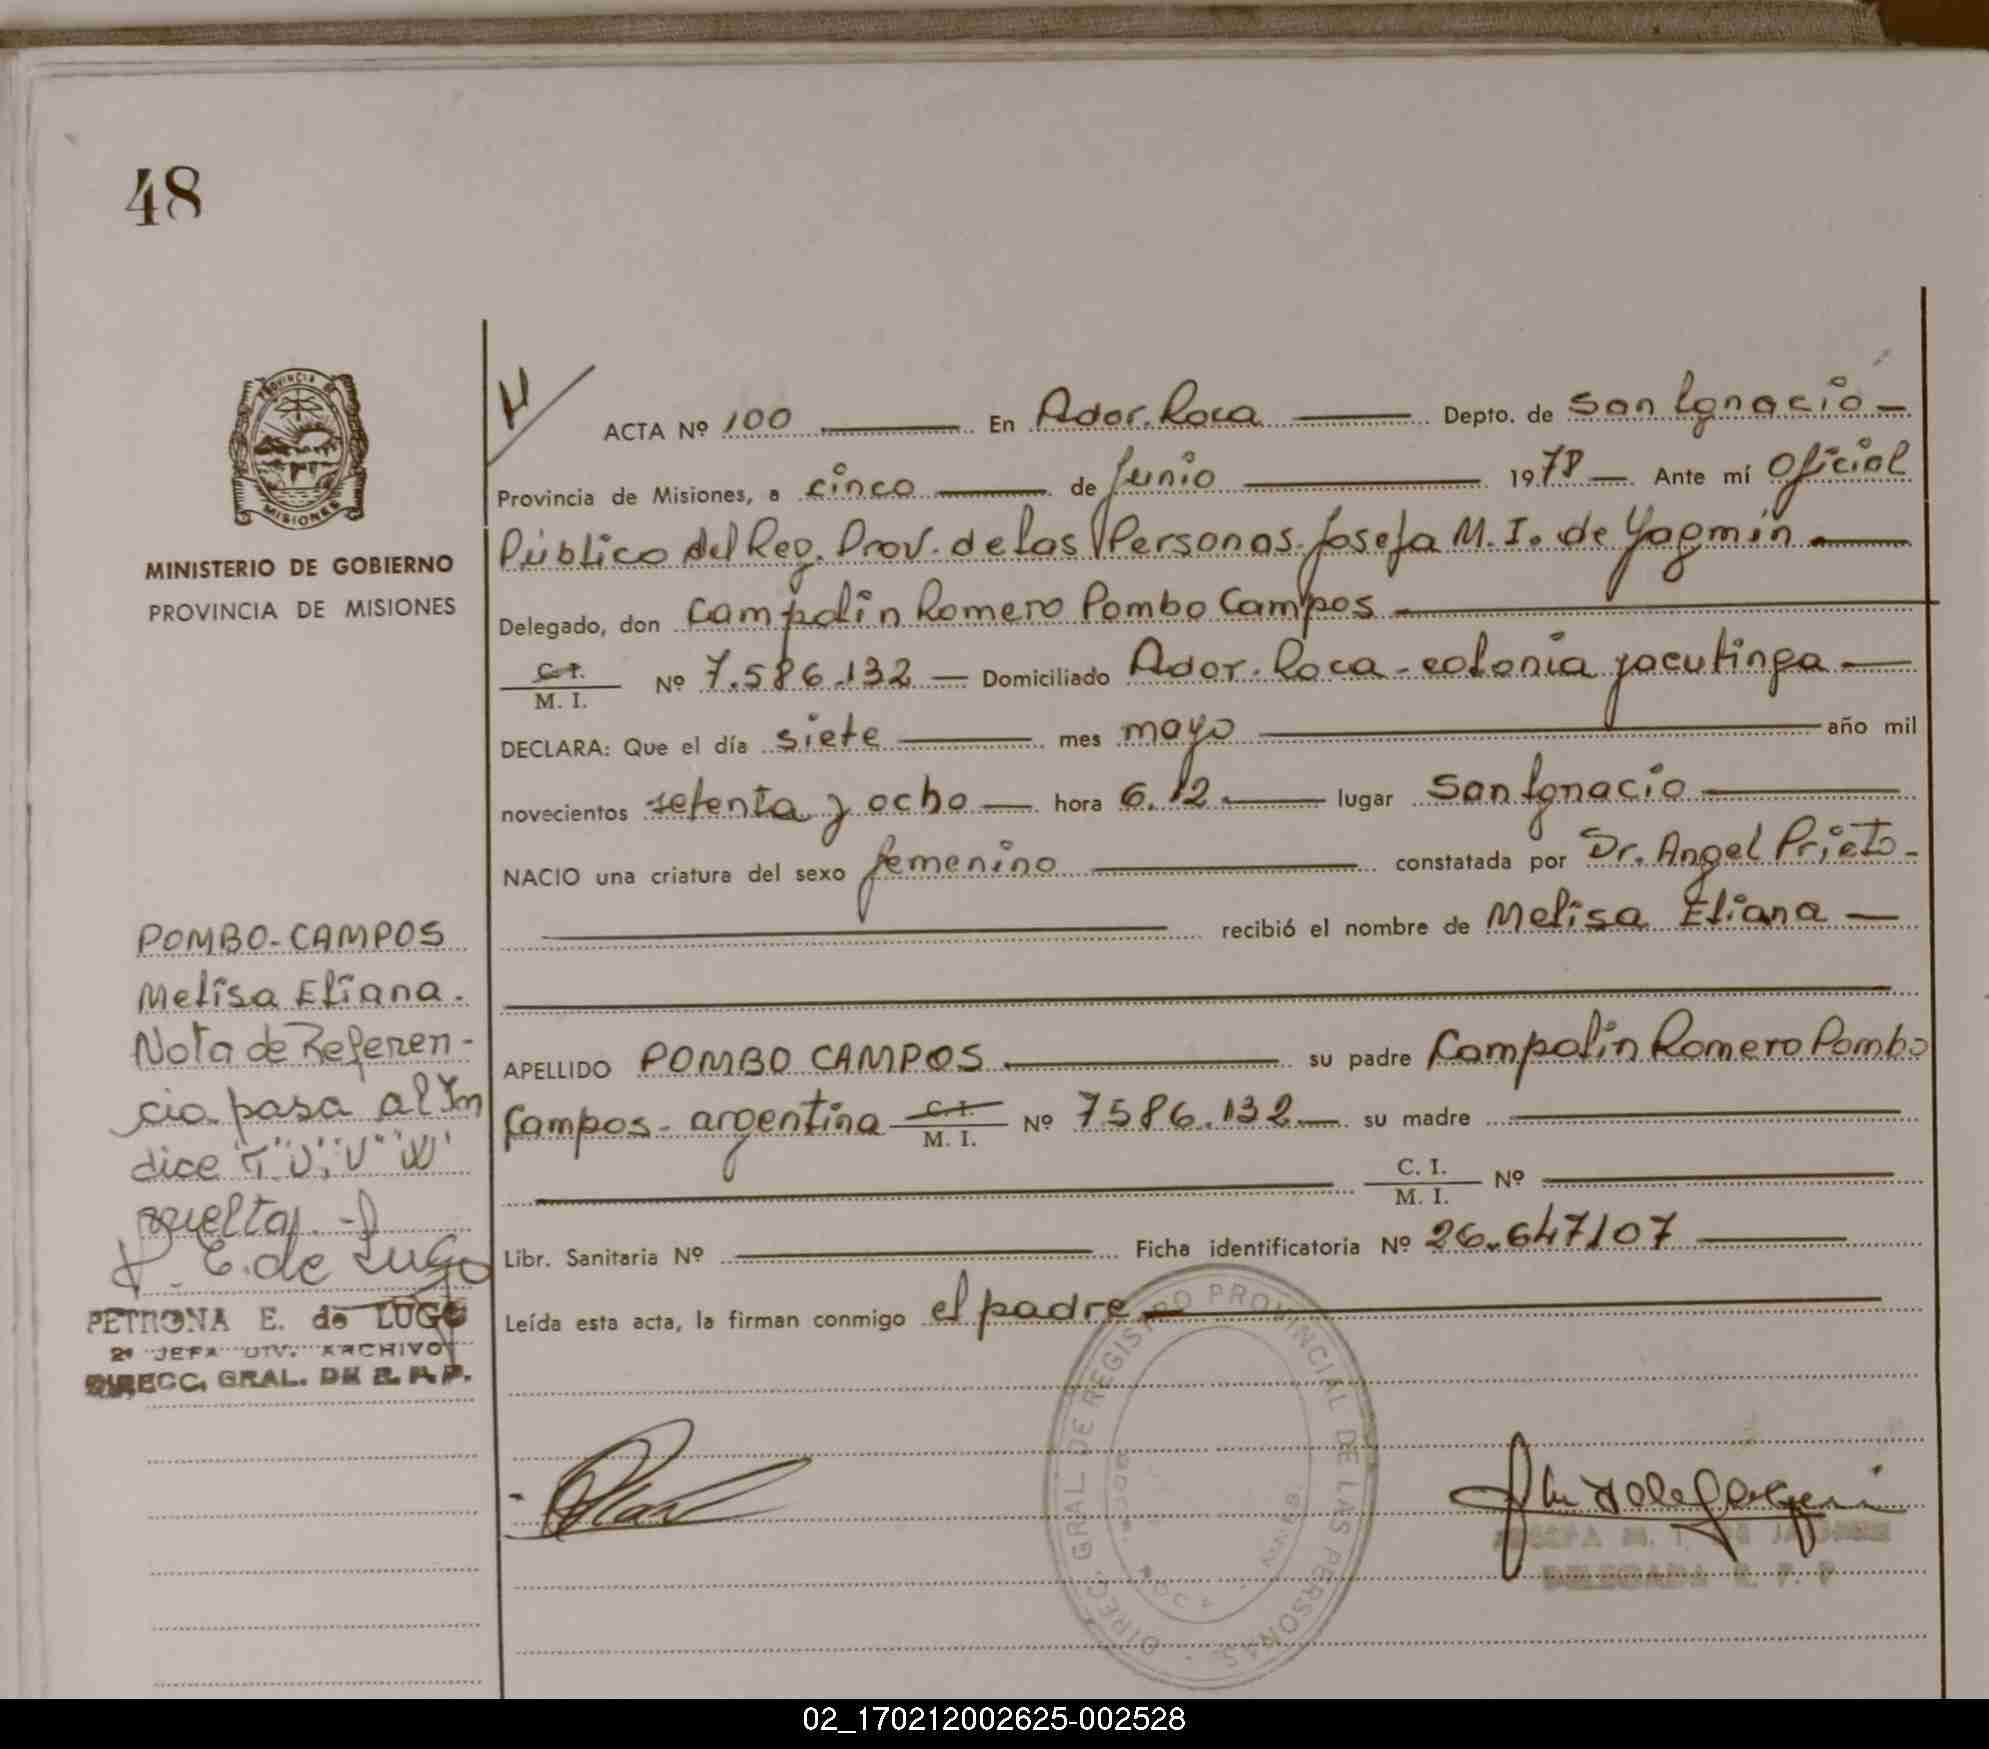 48
PROVINCIA DE
MISIONES
MINISTERIO DE GOBIERNO
PROVINCIA DE MISIONES
ACTA Nº 100 En Ador. Roca Depto. de San Ignacio
Provincia de Misiones, a cinco de Junio 1978 Ante mí Oficial
Público del Reg. Prov. de las Personas Josefa M. I. de Yagmín
Delegado, don Campolin Romero Pombo Campos
C. I.
M. I. Nº 7.586.132 Domiciliado Ador. Roca - colonia yacutinga
DECLARA: Que el día siete mes mayo año mil
novecientos setenta y ocho hora 6.12 lugar San Ignacio
NACIO una criatura del sexo femenino constatada por Dr. Angel Prieto
recibió el nombre de Melisa Eliana
APELLIDO POMBO CAMPOS su padre Campolin Romero Pombo
Campos - argentina C. I. M. I. Nº 7586.132 su madre
C. I.
M. I. Nº
Libr. Sanitaria Nº Ficha identificatoria Nº 26.647107
Leída esta acta, la firman conmigo el padre
POMBO-CAMPOS
Melisa Eliana.
Nota de Referen-
cia pasa al In
dice "T" "U", "V" "W"
E. de Lugo
PETRONA E. de LUGO
2ª JEFA DIV. ARCHIVO
DIRECC. GRAL. DE R. P. P.
DIREC. GRAL. DE REGISTRO PROVINCIAL DE LAS PERSONAS
DELEGADA R. P. P.
02_170212002625-002528